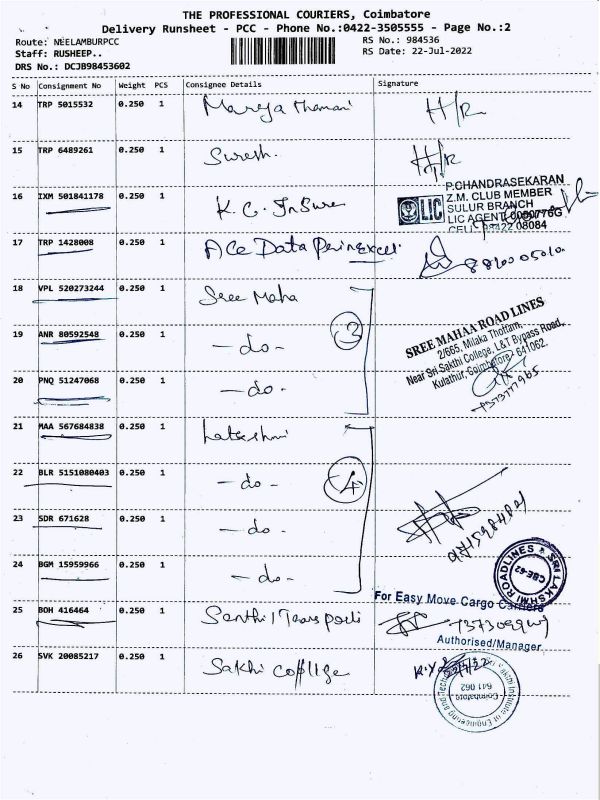 THE PROFESSIONAL COURIERS, Coimbatore
Delivery Runsheet - PCC - Phone No.:0422-3505555 - Page No.:2
Route: NEELAMBURPCC
RS No.: 984536
Staff: RUSHEEP..
RS Date: 22-Jul-2022
DRS No.: DCJB98453602
S No Consignment No Weight PCS Consignee Details Signature
14 TRP 5015532 0.250 1 H/R
15 TRP 6489261 0.250 1 Suresh. H/R
16 IXM 501841178 0.250 1 K.C.
P.CHANDRASEKARAN
Z.M. CLUB MEMBER
LIC SULUR BRANCH
LIC AGENT
08084
17 TRP 1428008 0.250 1 Ace Data
18 VPL 520273244 0.250 1 Sree Maha
19 ANR 80592548 0.250 1 - do - 3
SREE MAHAA ROAD LINES
2/665, Milaka Thottam,
Near Sri Sakthi College, L&T Bypass Road,
Kulathur, Coimbatore - 641062.
20 PNQ 51247068 0.250 1 - do -
21 MAA 567684838 0.250 1 Lakshmi
22 BLR 5151080403 0.250 1 - do - 4
23 SDR 671628 0.250 1 - do -
24 BGM 15959966 0.250 1 - do -
SRI LAKSHMI ROADLINES
CBE-62
For Easy Move Cargo Carriers
25 BOH 416464 0.250 1 Senthil Transport
Authorised/Manager
26 SVK 20085217 0.250 1 Sakthi college
Sakthi Institute of Engineering and Tech
Coimbatore
641 062